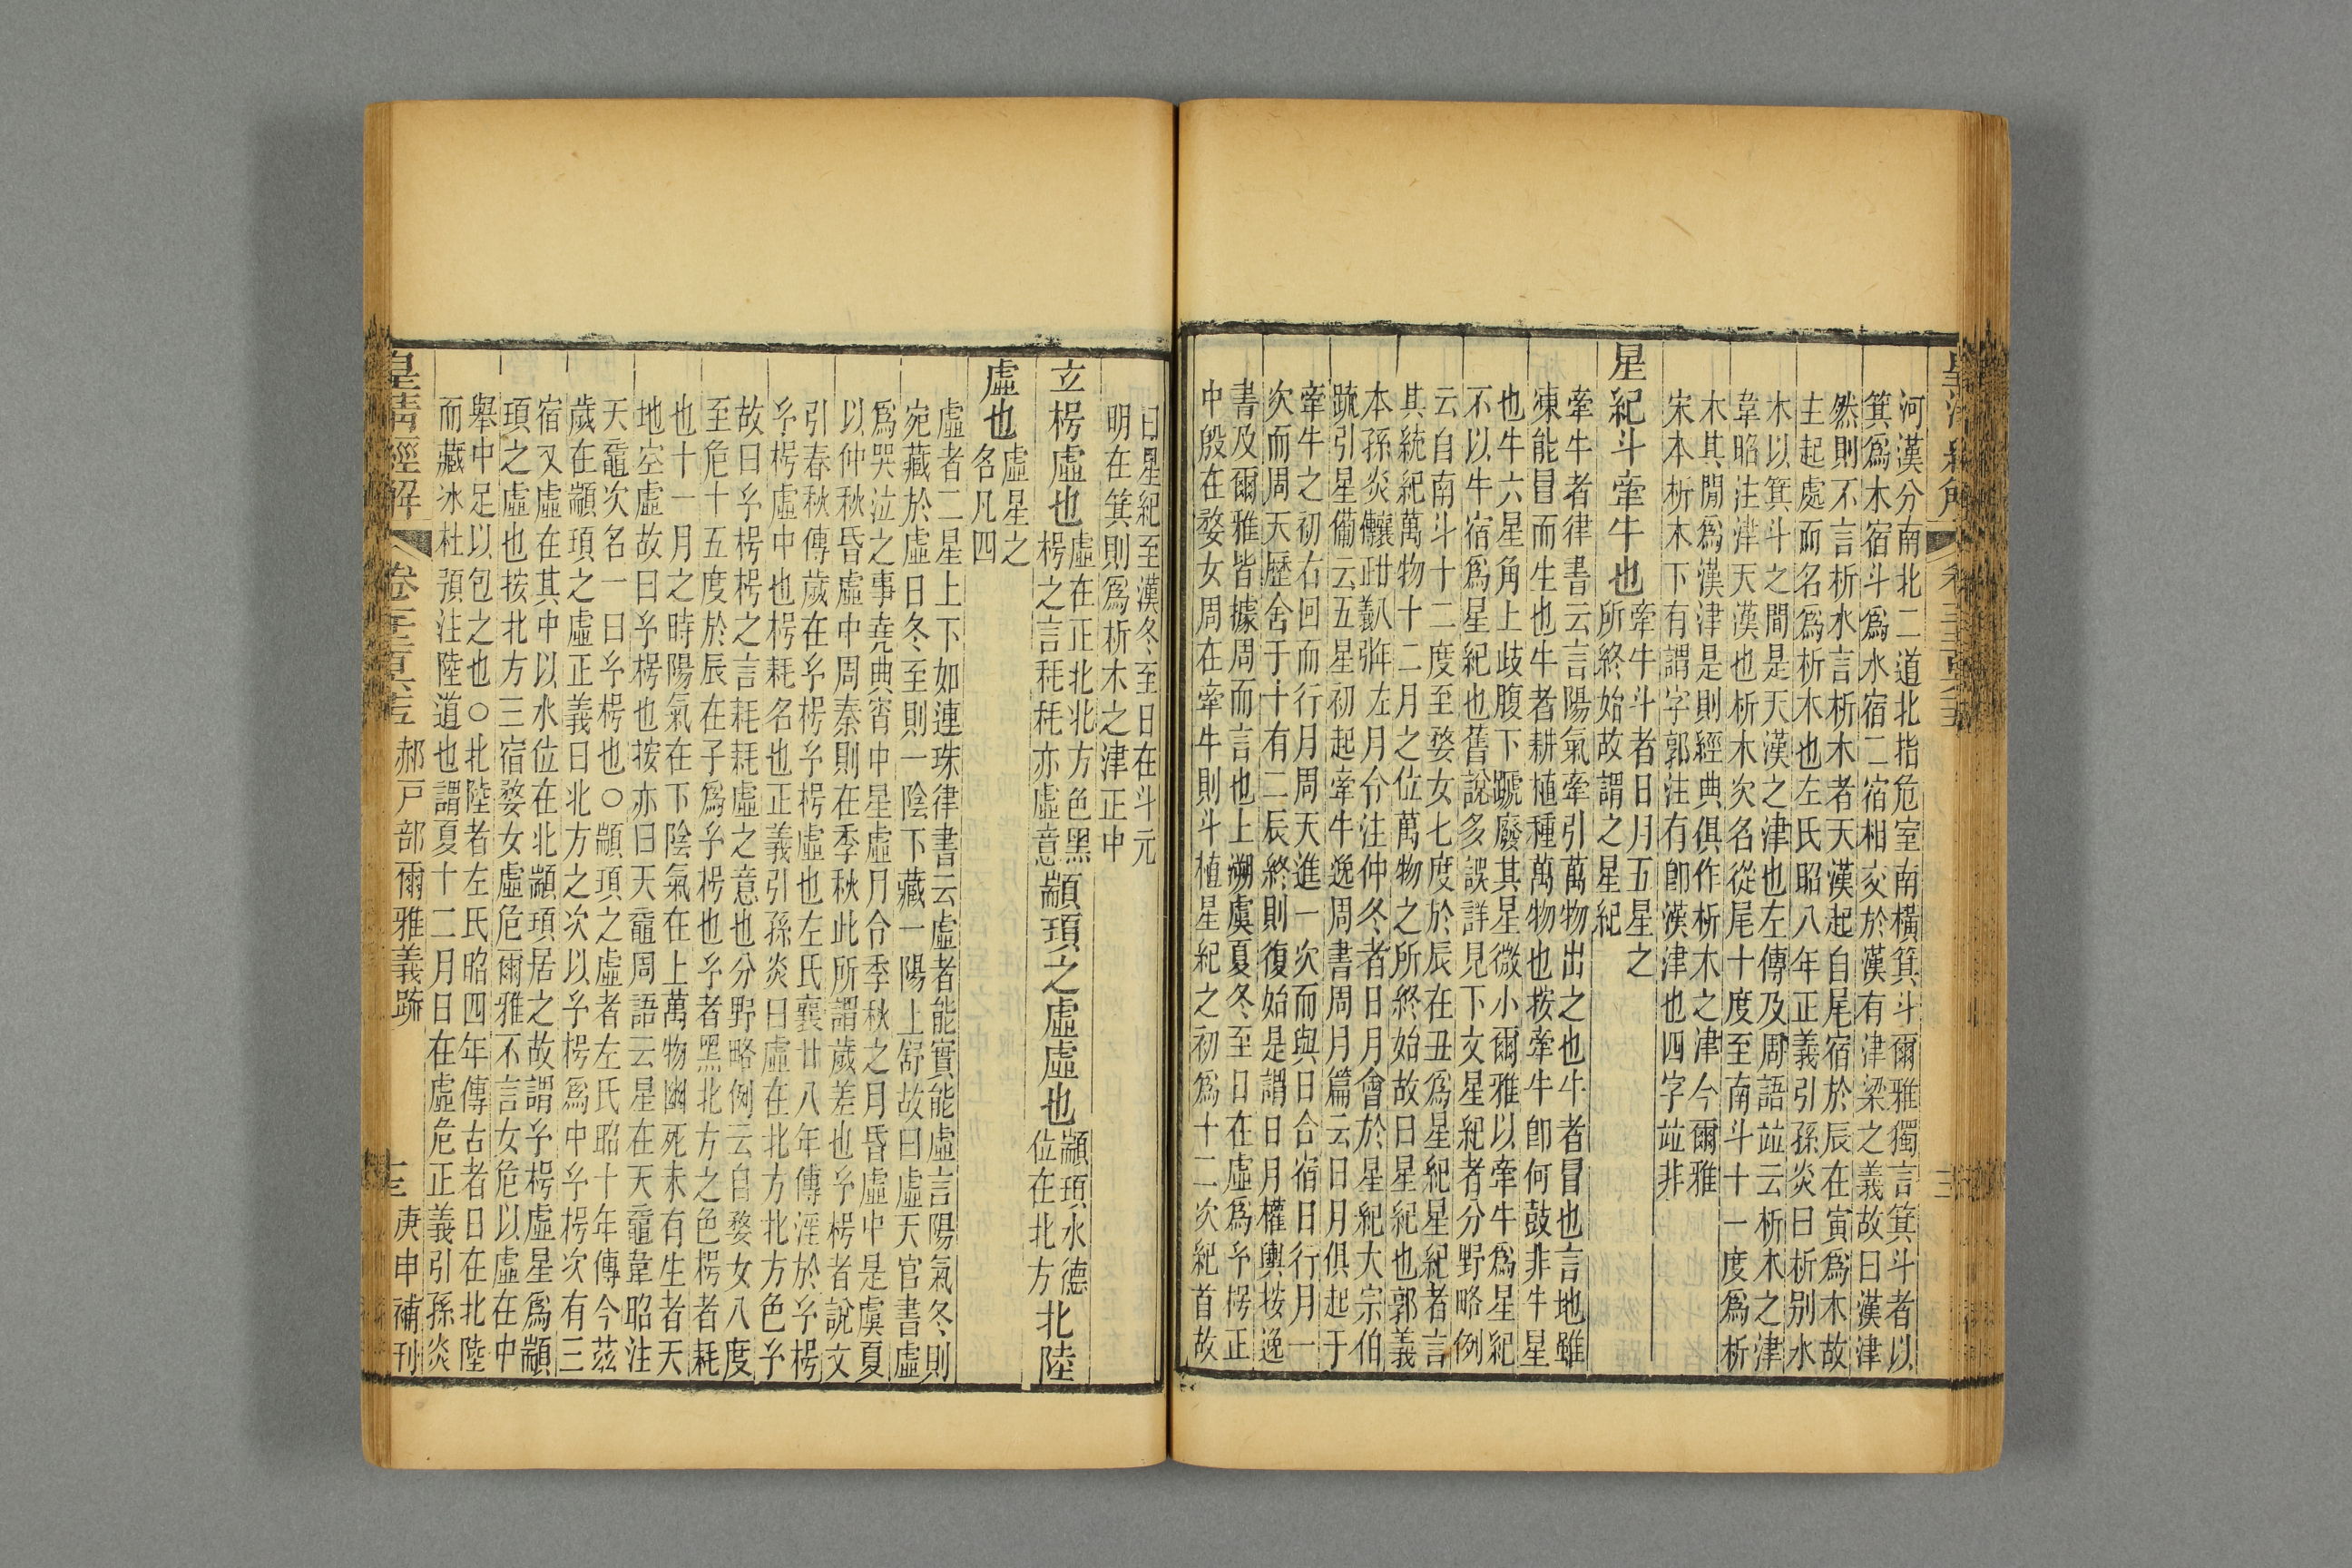 河漢分南北二道北指危室南橫箕斗爾雅獨言箕斗者以
箕爲木宿斗爲水宿二宿相交於漢有津梁之義故曰漢津
然則不言析水言析木者天漢起自尾宿於辰在寅爲木故
主起處而名爲析木也左氏昭八年正義引孫炎曰析別水
木以箕斗之間是天漢之津也左傳及周語竝云析木之津
韋昭注津天漢也析木次名從尾十度至南斗十一度爲析
木其閒爲漢津是則經典俱作析木之津今爾雅
宋本析木下有謂字郭注有卽漢津也四字竝非
星紀斗牽牛也
牽牛斗者日月五星之
所終始故謂之星紀
牽牛者律書云言陽氣牽引萬物出之也牛者冒也言地雖
凍能冒而生也牛者耕植種萬物也按牽牛卽何鼓非牛星
也牛六星角上歧腹下蹏廢其星微小爾雅以牽牛爲星紀
不以牛宿爲星紀也舊說多誤詳見下文星紀者分野略例
云自南斗十二度至婺女七度於辰在丑爲星紀星紀者言
其統紀萬物十二月之位萬物之所終始故曰星紀也郭義
本孫炎左月令注仲冬者日月會於星紀大宗伯
疏引星備云五星初起牽牛逸周書周月篇云日月俱起于
牽牛之初右回而行月周天進一次而與日合宿日行月一
次而周天歷舍于十有二辰終則復始是謂日月權輿按逸
書及爾雅皆據周而言也上溯虞夏冬至日在虛爲𤣥枵正
中殷在婺女周在牽牛則斗植星紀之初爲十二次紀首故
曰星紀至漢冬至日在斗元
明在箕則爲析木之津正中
玄枵虛也
虛在正北北方色黑
枵之言秏秏亦虛意
顓頊之虛虛也
顓頊水德
位在北方
北陸
虛也
虛星之
名凡四
虛者二星上下如連珠律書云虛者能實能虛言陽氣冬則
宛藏於虛日冬至則一陰下藏一陽上舒故曰虛天官書虛
爲哭泣之事堯典宵中星虛月令季秋之月昏虛中是虞夏
以仲秋昏虛中周秦則在季秋此所謂歲差也𤣥枵者說文
引春秋傳歲在𤣥枵𤣥枵虛也左氏襄廿八年傳淫於𤣥枵
𤣥枵虛中也枵耗名也正義引孫炎曰虛在北方北方色𤣥
故曰𤣥枵枵之言耗耗虛之意也分野略例云自婺女八度
至危十五度於辰在子爲𤣥枵也𤣥者黑北方之色枵者耗
也十一月之時陽氣在下陰氣在上萬物幽死未有生者天
地空虛故曰𤣥枵也按亦曰天黿周語云星在天黿韋昭注
天黿次名一曰𤣥枵也○顓頊之虛者左氏昭十年傳今茲
歲在顓頊之虛正義曰北方之次以𤣥枵爲中𤣥枵次有三
宿又虛在其中以水位在北顓頊居之故謂𤣥枵虛星爲顓
頊之虛也按北方三宿婺女虛危爾雅不言女危以虛在中
舉中足以包之也○北陸者左氏昭四年傳古者日在北陸
而藏冰杜預注陸道也謂夏十二月日在虛危正義引孫炎
皇清經解
郝戶部爾雅義疏
庚申補刊